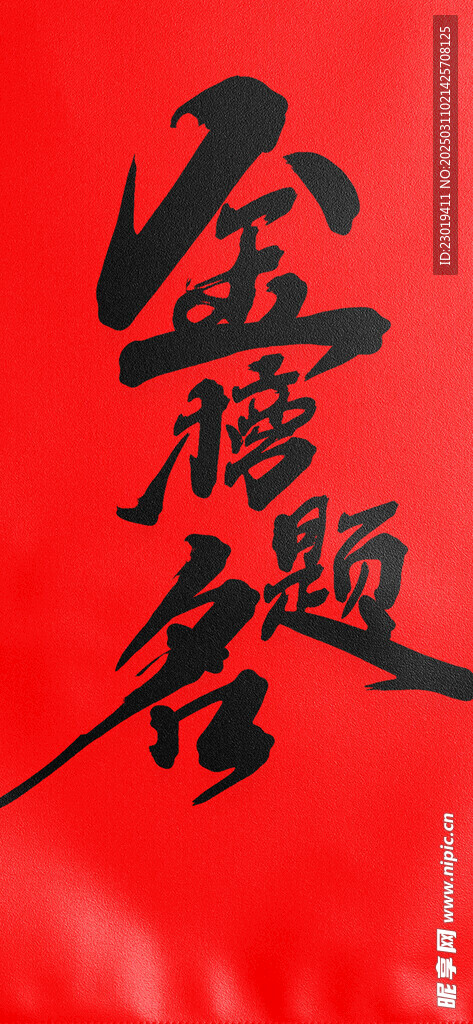 金
榜
题
名
ID:23019411 NO:20250311021425708125
昵享网 www.nipic.cn